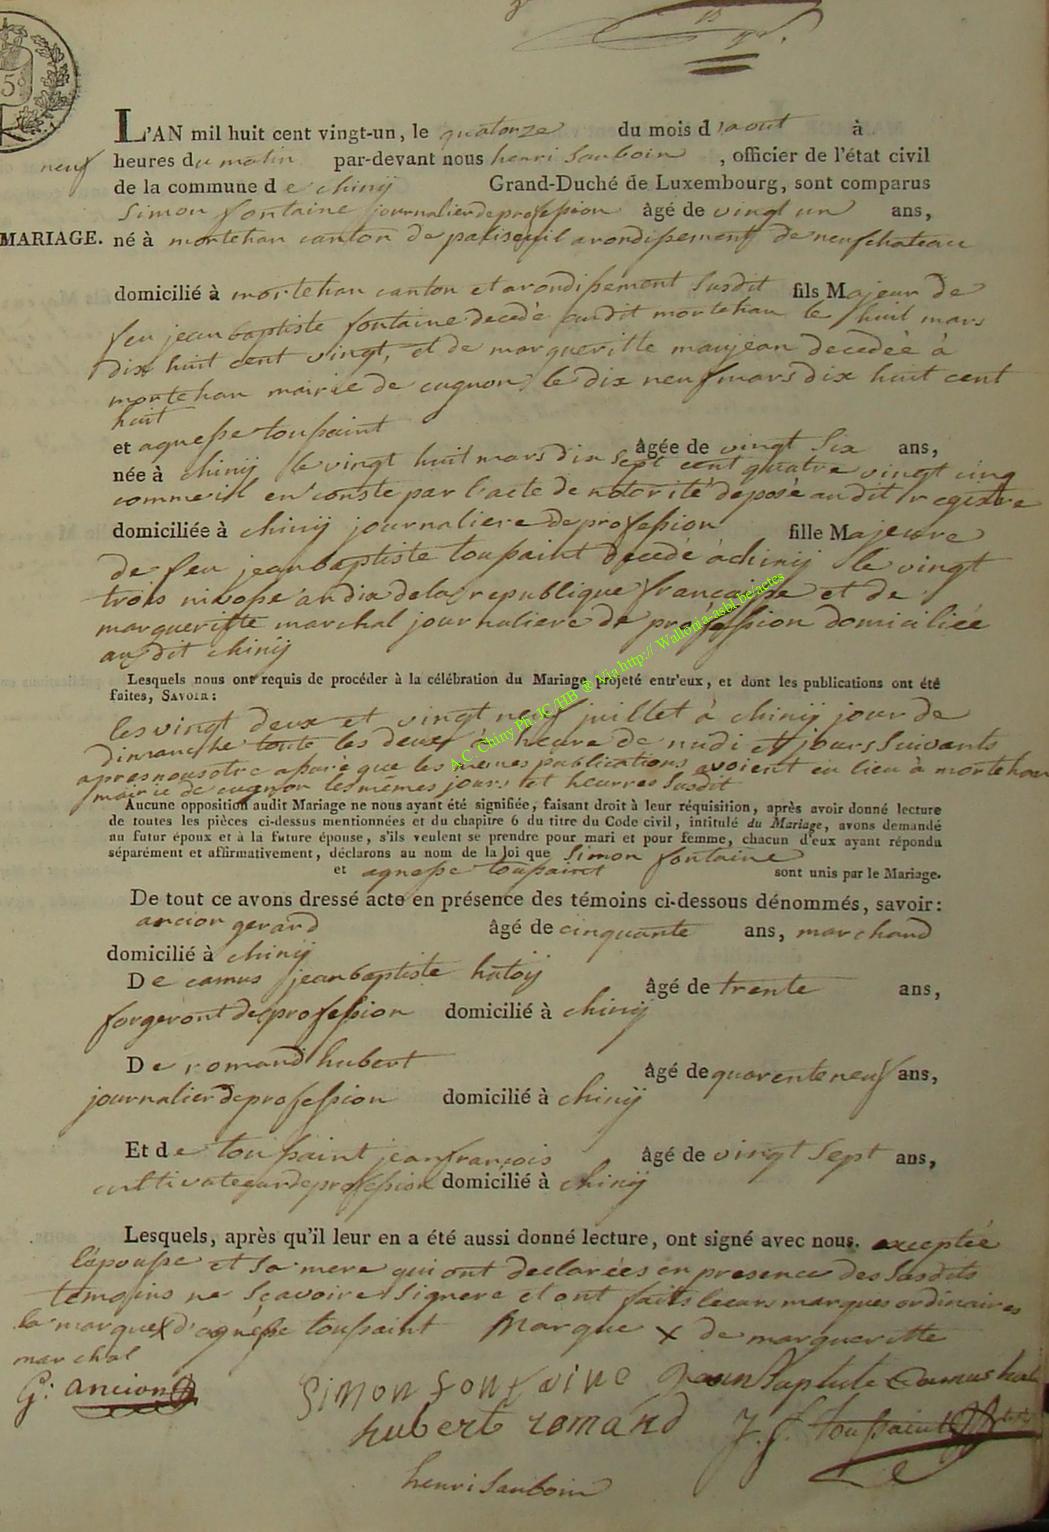 L'AN mil huit cent vingt-un, le quatorze du mois d'aout à
neuf heures du matin par-devant nous henri sauboin, officier de l'état civil
de la commune de chinÿ Grand-Duché de Luxembourg, sont comparus
Simon fontaine journalier de profession âgé de vingt un ans,
MARIAGE. né à mortehan canton de paliseuil arondissement de neufchateau
domicilié à mortehan canton et arondissement susdit fils Majeur de
feu jean baptiste fontaine decedé audit mortehan le huit mars
dix huit cent vingt, et de margueritte maujean decedée à
mortehan mairie de cugnon le dix neuf mars dix huit cent
huit
et agnesse toussaint âgée de vingt six ans,
née à chinÿ le vingt huit mars dix sept cent quatre vingt cinq
comme il en conste par l'acte de notorité deposé audit registre
domiciliée à chinÿ journaliere de profession fille Majeure
de feu jean baptiste toussaint decedé à chinÿ le vingt
trois nivose an dix de la republique françaisse et de
margueritte marchal journaliere de profession domiciliée
audit chinÿ
Lesquels nous ont requis de procéder à la célébration du Mariage projeté entr'eux, et dont les publications ont été
faites, SAVOIR:
les vingt deux et vingt neuf juillet à chinÿ jour de
dimanche toute les deux à heure de midi et jours suivants
apres nous otre aparé que les mêmes publications avoient eu lieu à mortehan
mairie de cugnon les mêmes jours et heurres susdit
Aucune opposition audit Mariage ne nous ayant été signifiée, faisant droit à leur réquisition, après avoir donné lecture
de toutes les pièces ci-dessus mentionnées et du chapitre 6 du titre du Code civil, intitulé du Mariage, avons demandé
au futur époux et à la future épouse, s'ils veulent se prendre pour mari et pour femme, chacun d'eux ayant répondu
séparément et affirmativement, déclarons au nom de la loi que Simon fontaine
et agnesse toussaint sont unis par le Mariage.
De tout ce avons dressé acte en présence des témoins ci-dessous dénommés, savoir:
ancion gerard âgé de cinquante ans, marchand
domicilié à chinÿ
De camus jean baptiste hatoÿ âgé de trente ans,
forgeront de profession domicilié à chinÿ
De romand hubert âgé de quarente neuf ans,
journalier de profession domicilié à chinÿ
Et de toussaint jean françois âgé de vingt sept ans,
cultivateur de profession domicilié à chinÿ
Lesquels, après qu'il leur en a été aussi donné lecture, ont signé avec nous. exceptée
l'epousse et sa mere qui ont declarées en presence des susdits
temoins ne sçavoire signere et ont faits leurs marques ordinaires
la marque x d'agnesse toussaint Marque x de margueritte
marchal
G: ancion
Simon fontaine jean baptiste Camus
hubert romand J. f. toussaint
henri sauboin
A.C. Chiny Ph. JC /HB ® Via http:// Wallonia-asbl.be/actes